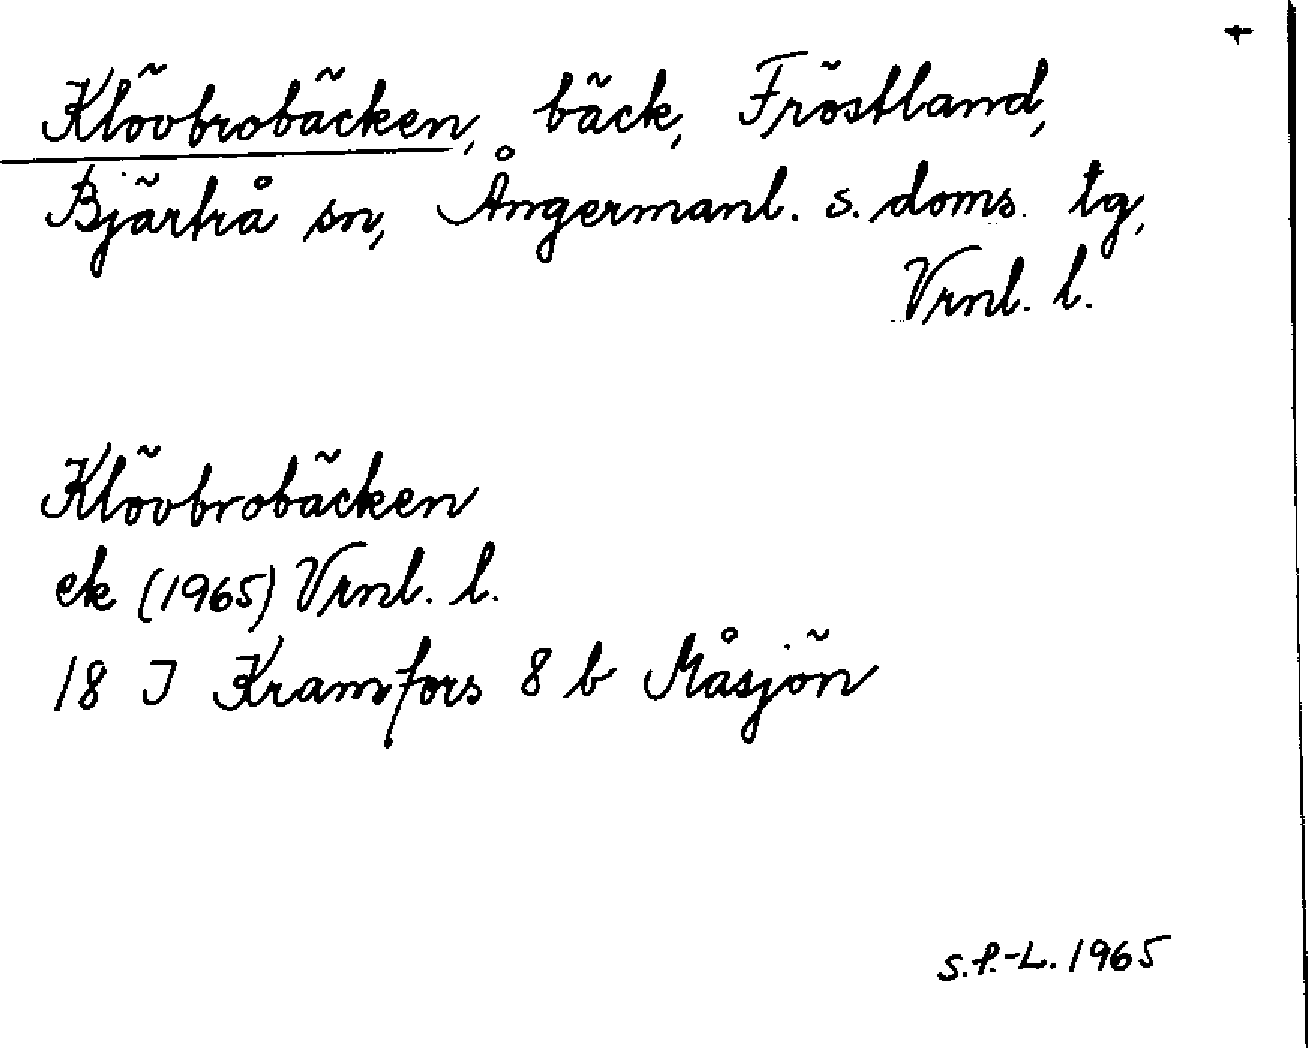 +
Klövbrobäcken, bäck, Fröstland,
Bjärtrå sn, Ångermanl. s. doms. tg,
Vrnl. l.
Klövbrobäcken
ek (1965) Vrnl. l.
18 J Kramfors 8 b Måsjön
S.P.-L. 1965